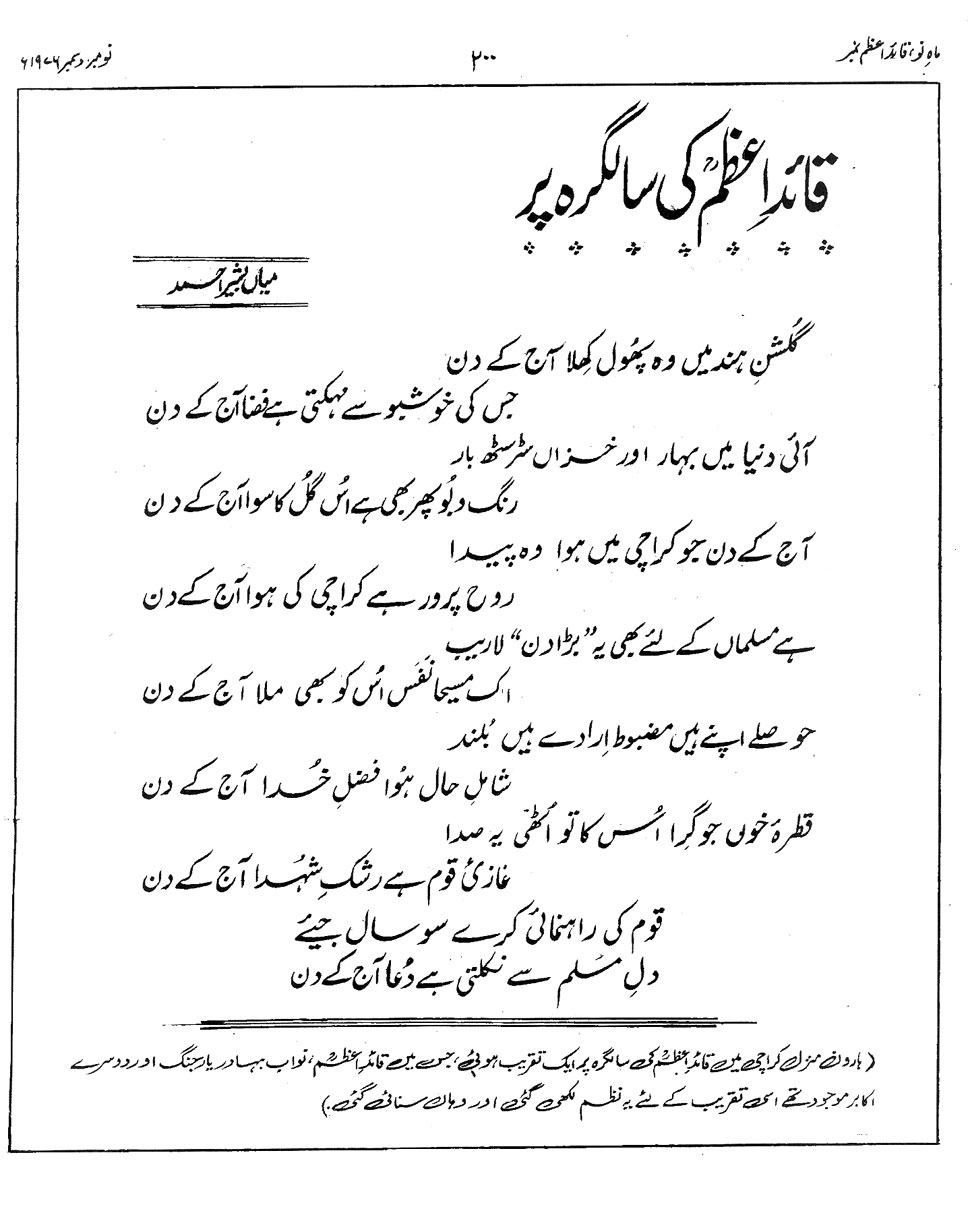 ماہِ نو، قائدِ اعظم نمبر
۲۰۰
نومبر دسمبر ۱۹۷۶ء
قائدِ اعظمؒ کی سالگرہ پر
میاں بشیر احمد
گلشنِ ہند میں وہ پھُول کھِلا آج کے دن
جس کی خوشبو سے مہکتی ہے فضا آج کے دن
آئی دنیا میں بہار اور خزاں سڑسٹھ بار
رنگ و بُو پھر بھی ہے اُس گُل کا سوا آج کے دن
آج کے دن جو کراچی میں ہوا وہ پیدا
روح پرور ہے کراچی کی ہوا آج کے دن
ہے مسلماں کے لئے بھی یہ “بڑا دن” لاریب
اک مسیحا نفَس اُس کو بھی ملا آج کے دن
حوصلے اپنے ہیں مضبوط اِرادے ہیں بُلند
شاملِ حال ہُوا فضلِ خُدا آج کے دن
قطرۂ خوں جو گِرا اُس کا تو اُٹھّی یہ صدا
غازئ قوم ہے رشکِ شہُدا آج کے دن
قوم کی راہنمائی کرے سو سال جیئے
دلِ مسُلم سے نکلتی ہے دُعا آج کے دن
(ہارون منزل کراچی میں قائدِ اعظمؒ کی سالگرہ پر ایک تقریب ہوئی، جس میں قائدِ اعظمؒ، نواب بہادر یار جنگ اور دوسرے
اکابر موجود تھے اسی تقریب کے لئے یہ نظم لکھی گئی اور وہاں سنائی گئی۔)